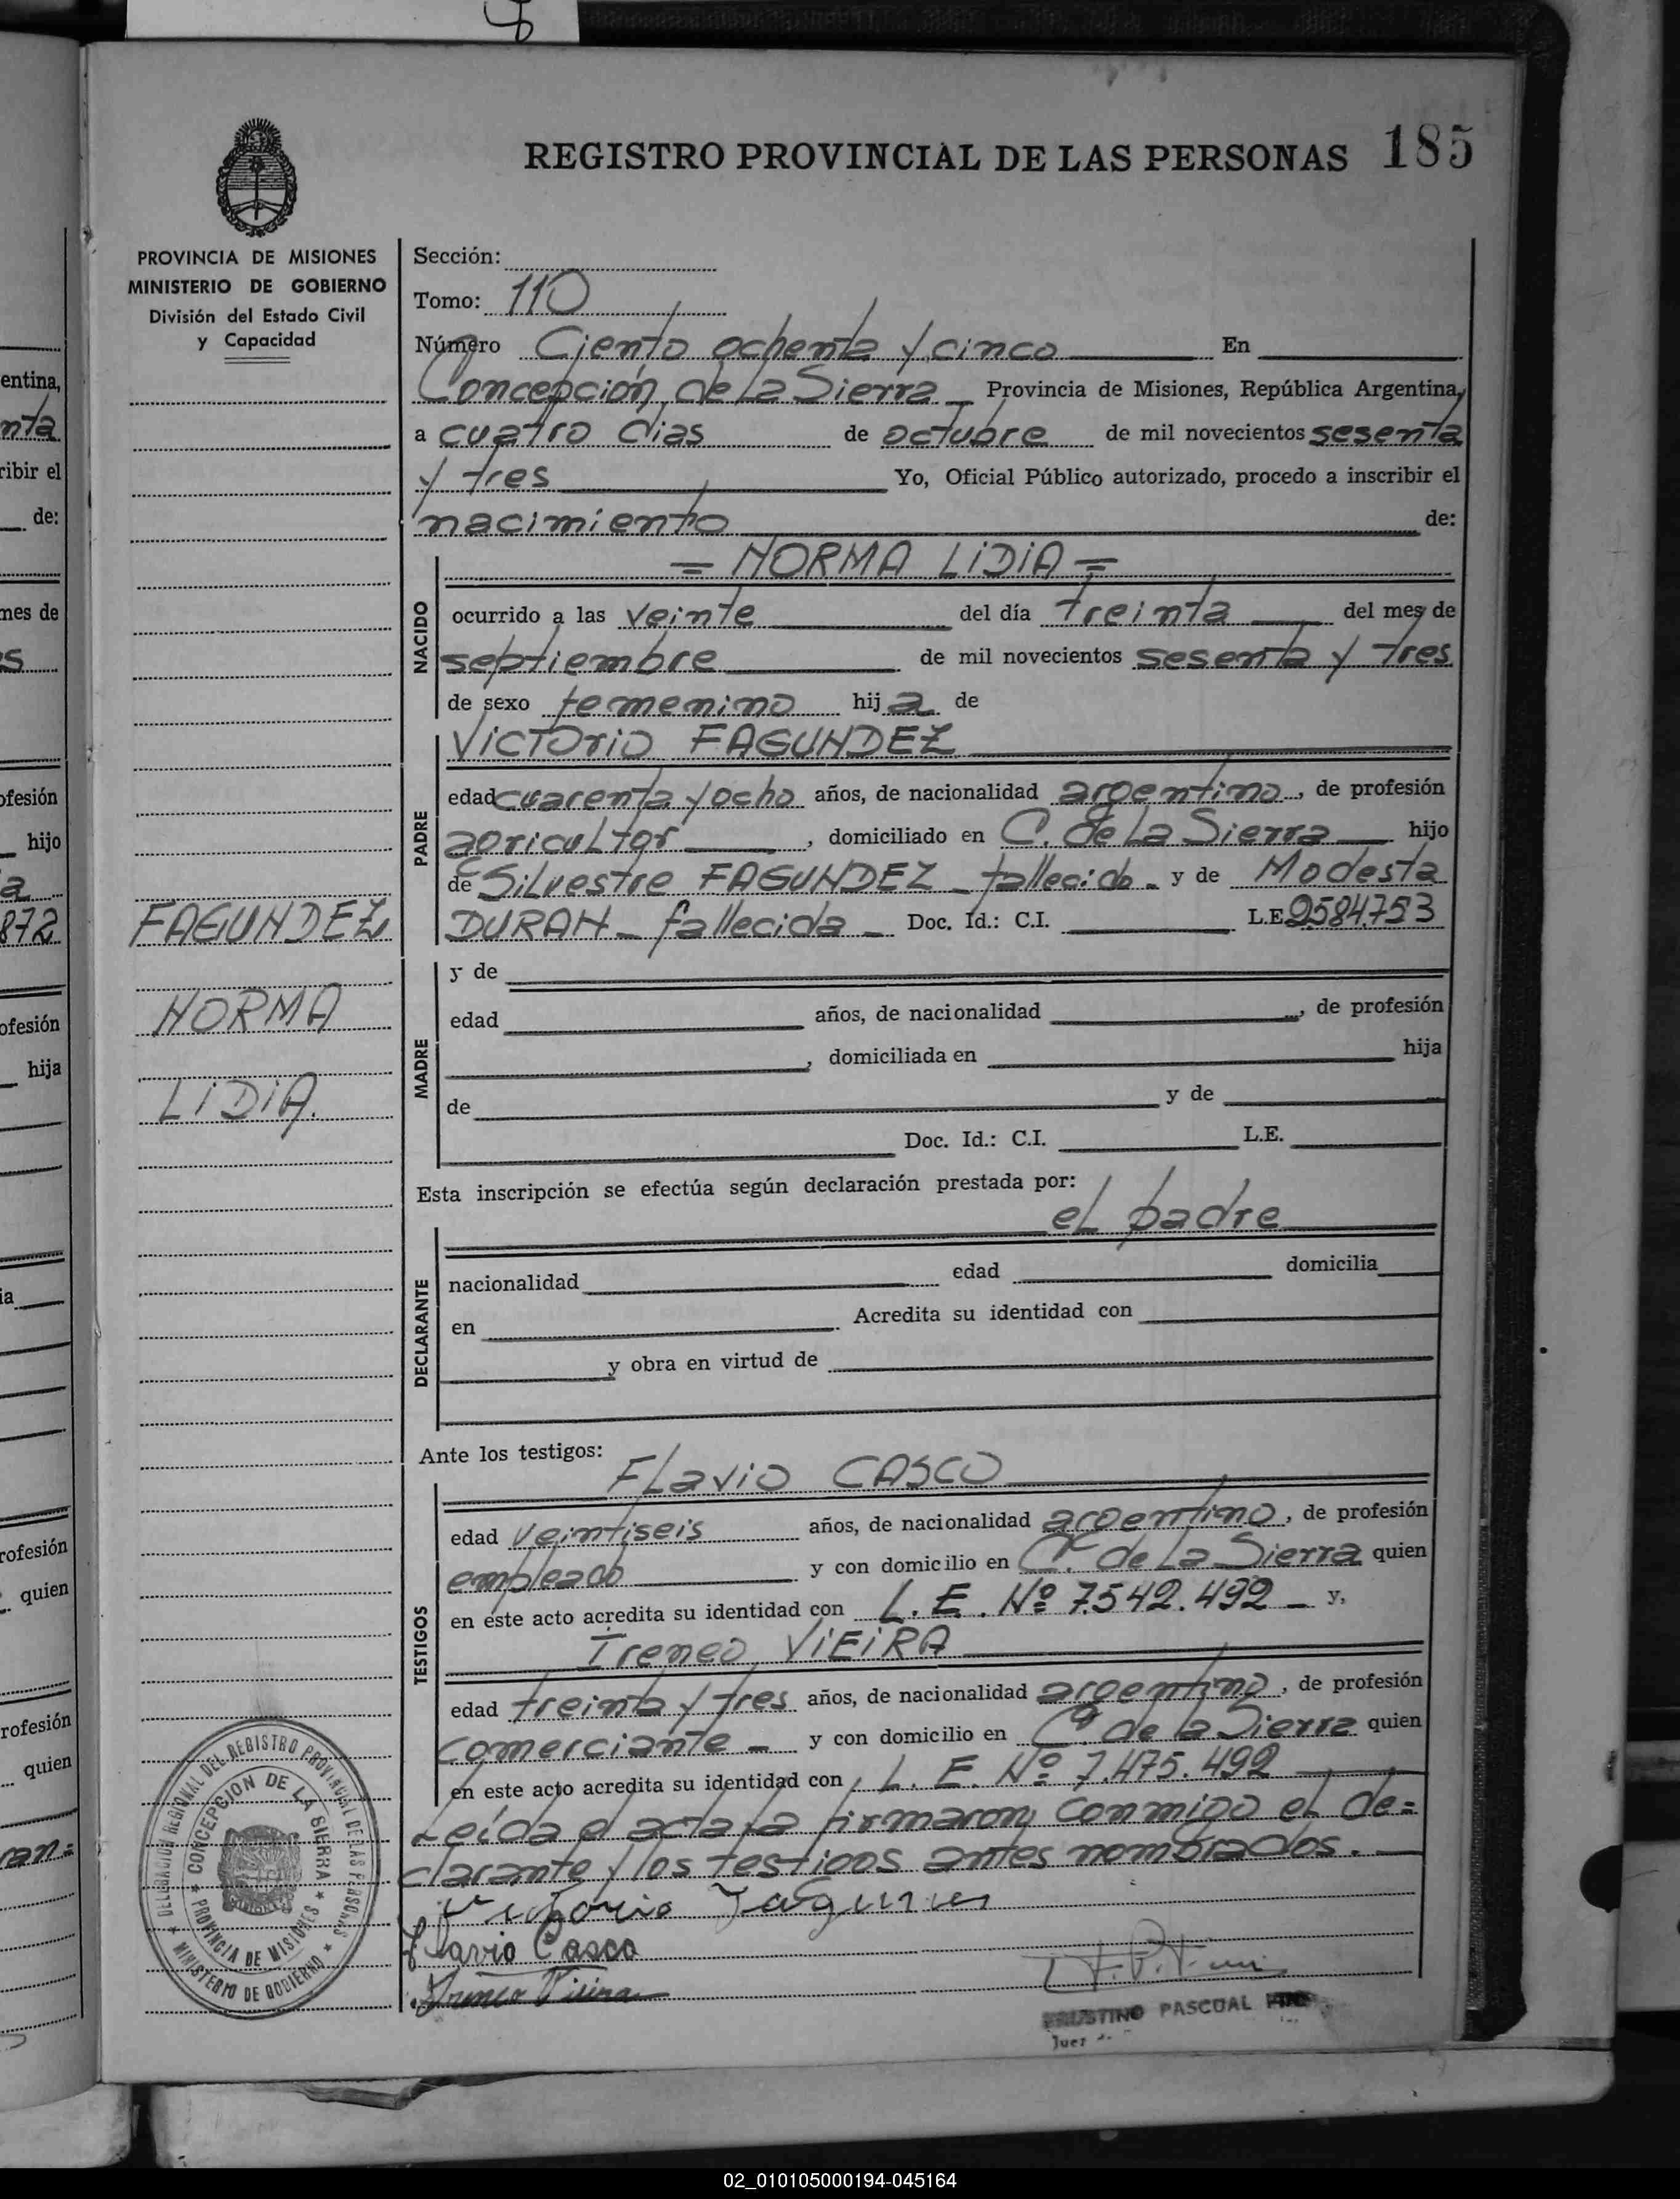 REGISTRO PROVINCIAL DE LAS PERSONAS 185
PROVINCIA DE MISIONES
MINISTERIO DE GOBIERNO
División del Estado Civil
y Capacidad
Sección:
Tomo: 110
Número Ciento ochenta y cinco En
Concepción de La Sierra Provincia de Misiones, República Argentina,
a cuatro dias de octubre de mil novecientos sesenta
y tres Yo, Oficial Público autorizado, procedo a inscribir el
nacimiento de:
= NORMA LiDiA =
NACIDO
ocurrido a las veinte del día treinta del mes de
septiembre de mil novecientos sesenta y tres
de sexo femenino hij a de
VicTOriO FAGUNDEZ
PADRE
edad cuarenta y ocho años, de nacionalidad argentino, de profesión
agricultor, domiciliado en C. de La Sierra hijo
de Silvestre FAGUNDEZ - fallecido - y de Modesta
DURAN - fallecida - Doc. Id.: C.I. L.E. 2584.753
FAGUNDEZ
NORMA
LiDiA.
MADRE
y de
edad años, de nacionalidad, de profesión
, domiciliada en hija
de y de
Doc. Id.: C.I. L.E.
Esta inscripción se efectúa según declaración prestada por:
eL padre
DECLARANTE
nacionalidad edad domicilia
en Acredita su identidad con
y obra en virtud de
Ante los testigos:
FLavio CASCO
TESTIGOS
edad veintiseis años, de nacionalidad argentino, de profesión
empleado y con domicilio en C. de La Sierra quien
en este acto acredita su identidad con L. E. Nº 7.542.492 - y,
Ireneo VIEiRA
edad treinta y tres años, de nacionalidad argentino, de profesión
comerciante - y con domicilio en C. de la Sierra quien
en este acto acredita su identidad con L. E. Nº 7.475.492
Leída el acta la firmaron conmigo el de=
clarante y los testigos antes nombrados.
Flavio Casco
Ireneo Vieira
FAUSTINO PASCUAL
Juez
DELEGACION REGIONAL DEL REGISTRO PROVINCIAL DE LAS PERSONAS
MINISTERIO DE GOBIERNO
CONCEPCION DE LA SIERRA
PROVINCIA DE MISIONES
entina,
nta
ribir el
de:
mes de
s
ofesión
hijo
a
872
ofesión
hija
ia
rofesión
quien
rofesión
quien
ran=
02_010105000194-045164